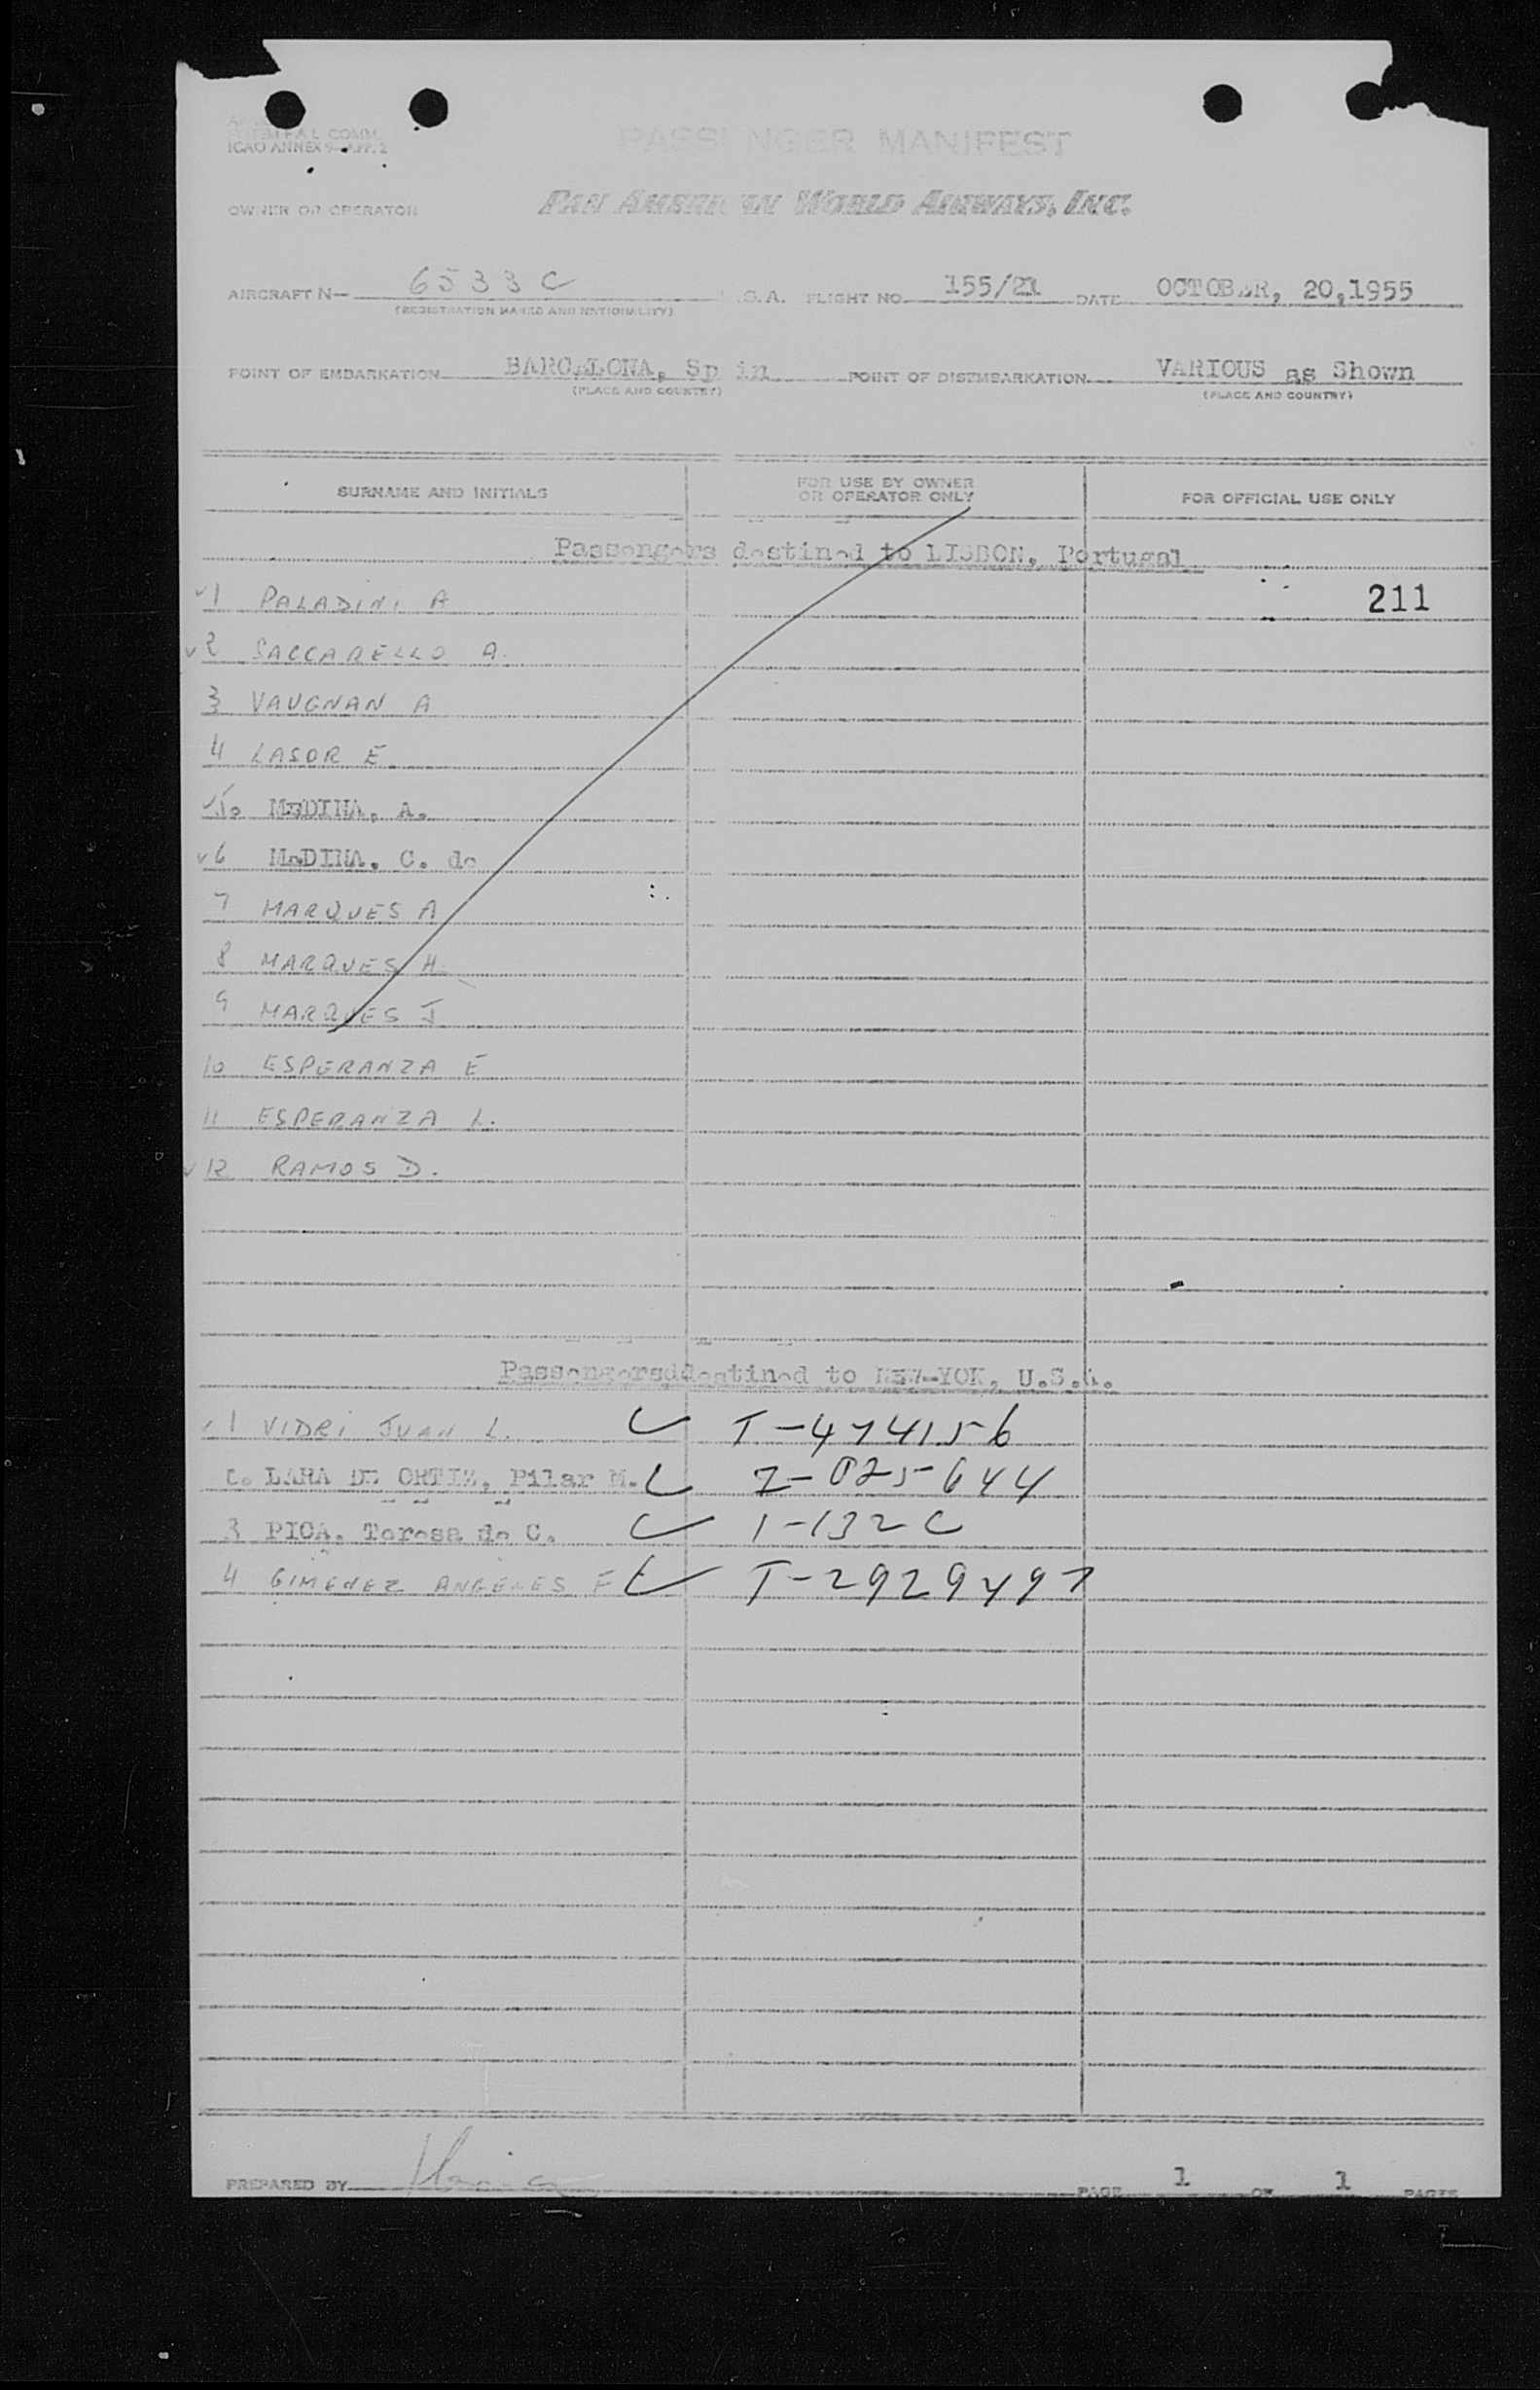 ICAO ANNEX 9—APP. 2
PASSENGER MANIFEST
OWNER OR OPERATOR PAN AMERICAN WORLD AIRWAYS, INC.
AIRCRAFT N— 6533C .S.A. FLIGHT NO. 155/21 DATE OCTOBER, 20,1955
(REGISTRATION MARKS AND NATIONALITY)
POINT OF EMBARKATION BARCELONA, Sp in POINT OF DISEMBARKATION VARIOUS as Shown
(PLACE AND COUNTRY) (PLACE AND COUNTRY)
SURNAME AND INITIALS FOR USE BY OWNER OR OPERATOR ONLY FOR OFFICIAL USE ONLY
Passengers destined to LISBON, Portugal
1 PALADINI A 211
2 SACCARELLO A.
3 VAUGNAN A
4 LASOR E
5. MEDINA, A.
6 MEDINA. C. de
7 MARQUES A
8 MARQUES H
9 MARQUES J
10 ESPERANZA E
11 ESPERANZA L.
12 RAMOS D.
Passengersddestined to NEW-YOK, U.S.A.
1 VIDRI JUAN L. T-474156
LARA DE ORTIZ, Pilar M. I-025-644
3 PICA. Teresa de C. 1-132C
4 GIMENEZ ANGELES F T-2929497
PREPARED BY PAGE 1 OF 1 PAGES